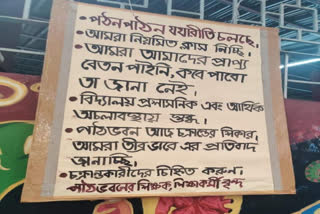 • পঠন পাঠন যথারীতি চলছে,
• আমরা নিয়মিত ক্লাস নিচ্ছি।
• আমরা আমাদের প্রাপ্য
বেতন পাইনি, কবে পাবো
তা জানা নেই,
• বিদ্যালয় প্রশাসনিক এবং আর্থিক
অচলাবস্থায় স্তব্ধ।
• পাঠভবন আজ চক্রান্তের শিকার,
আমরা তীব্র ভাবে এর প্রতিবাদ
জানাচ্ছি,
• চক্রান্তকারীদের চিহ্নিত করুন,
পাঠভবনের শিক্ষক, শিক্ষাকর্মী বৃন্দ